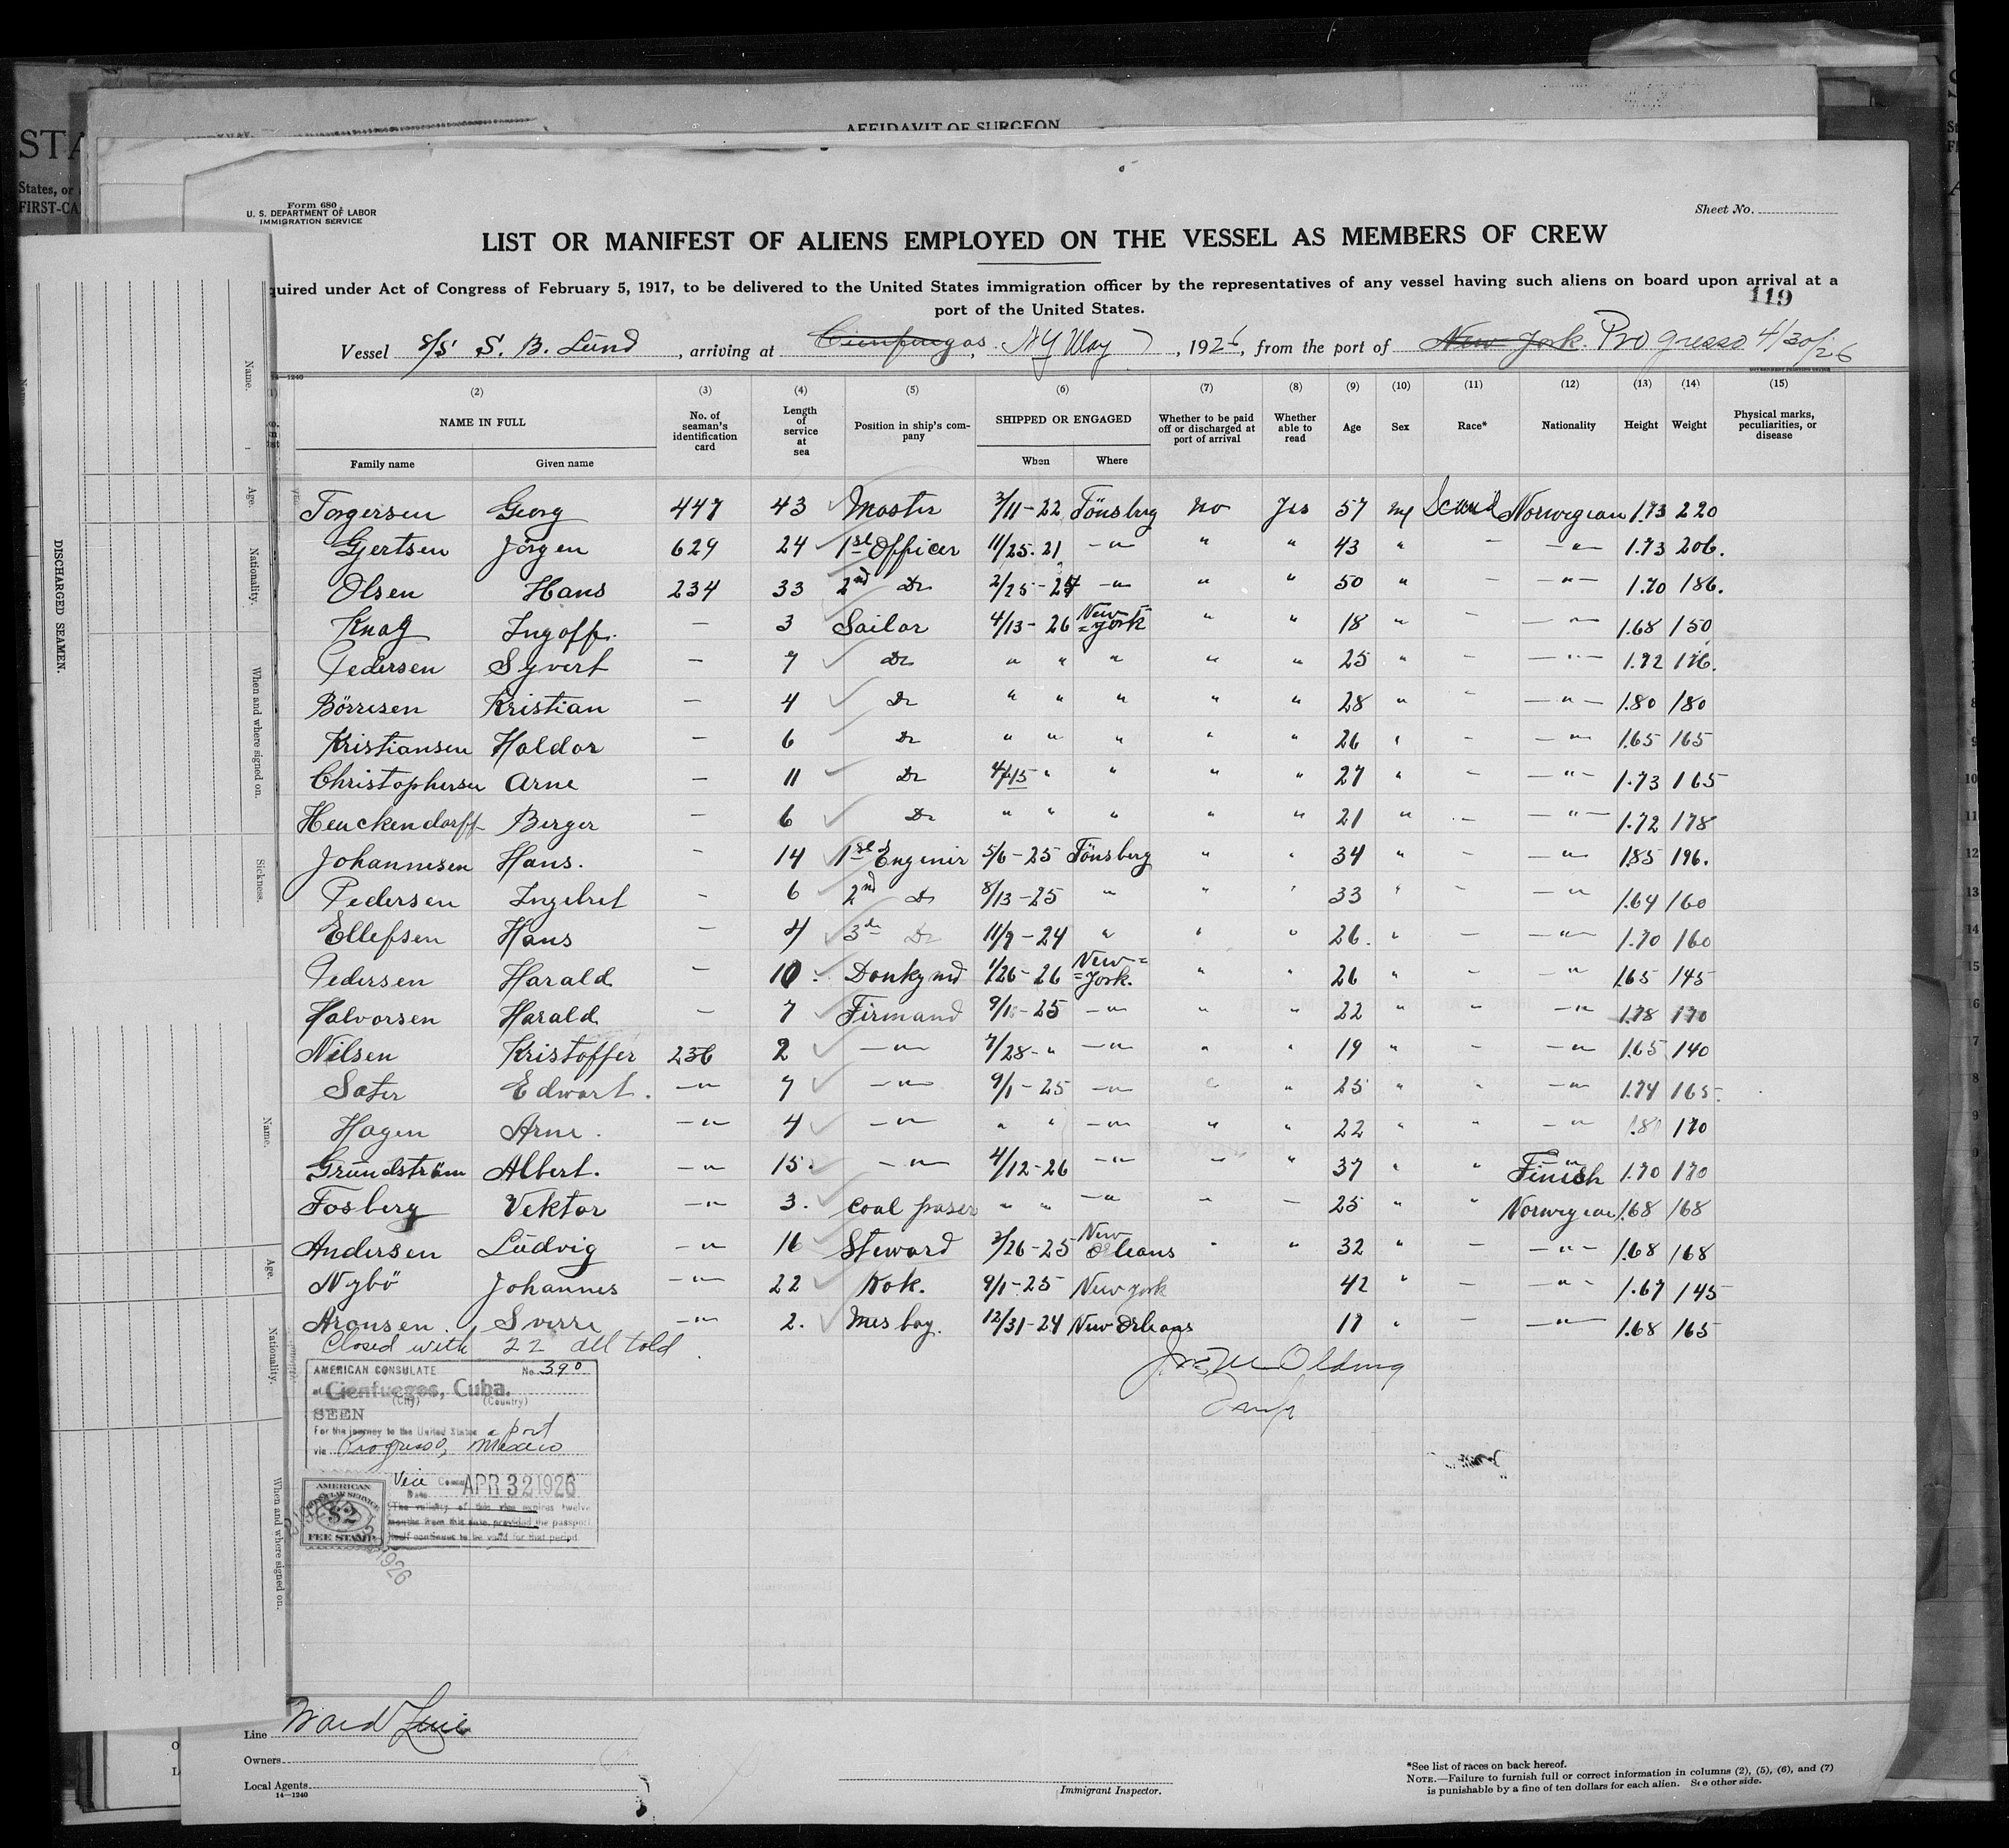 AFFIDAVIT OF SURGEON
STA
States, or
FIRST-CA
Form 680
U. S. DEPARTMENT OF LABOR
IMMIGRATION SERVICE
Sheet No.
LIST OR MANIFEST OF ALIENS EMPLOYED ON THE VESSEL AS MEMBERS OF CREW
quired under Act of Congress of February 5, 1917, to be delivered to the United States immigration officer by the representatives of any vessel having such aliens on board upon arrival at a
port of the United States.
119
Vessel S/S S. B. Lund, arriving at Cienfuegos, NY May 7, 1926, from the port of New York. Progreso 4/30/26
14—1240
(2) (3) (4) (5) (6) (7) (8) (9) (10) (11) (12) (13) (14) (15)
NAME IN FULL No. of seaman's identification card Length of service at sea Position in ship's company SHIPPED OR ENGAGED Whether to be paid off or discharged at port of arrival Whether able to read Age Sex Race* Nationality Height Weight Physical marks, peculiarities, or disease
Family name Given name When Where
Torgersen Georg 447 43 Master 3/11-22 Tönsberg No Yes 57 M Scand Norwegian 1.73 220
Gjertsen Jörgen 629 24 1st Officer 11/25.21 -"- " " 43 " - -"- 1.73 206.
Olsen Hans 234 33 2nd Do 2/25-24 -"- " " 50 " - -"- 1.70 186.
Knag Ingolf. - 3 Sailor 4/13-26 New=York " " 18 " - -"- 1.68 150
Pedersen Syvert - 7 Do " " " " " 25 " - -"- 1.72 176.
Börresen Kristian - 4 Do " " " " " 28 " - -"- 1.80 180
Kristiansen Haldor - 6 Do " " " " " 26 " - -"- 1.65 165
Christophersen Arne - 11 Do 4/15 " " " " 27 " - -"- 1.73 165
Heuckendorff Berger - 6 Do " " " " " 21 " - -"- 1.72 178
Johannesen Hans. - 14 1st Enginir 5/6-25 Tönsberg " " 34 " - -"- 1.85 196.
Pedersen Ingebret - 6 2nd Do 8/13-25 " " " 33 " - -"- 1.64 160
Ellefsen Hans - 4 3de Do 11/9-24 " " " 26. " - -"- 1.70 160
Pedersen Harald - 10 Donkymd 1/26-26 New=York. " " 26 " - -"- 1.65 145
Halvorsen Harald - 7 Firmand 9/1-25 -"- " " 22 " - -"- 1.78 170
Nilsen Kristoffer 236 2 -"- 7/28-" -"- " " 19 " - -"- 1.65 140
Sater Edwart. -"- 7 -"- 9/1-25 -"- " " 25 " " -"- 1.74 165.
Hagen Arne. -"- 4 -"- " " -"- " " 22 " " -"- 1.81 170
Grundström Albert. -"- 15. -"- 4/12-26 -"- " " 37 " " Finish 1.70 170
Fosberg Vektor -"- 3. Coal paser " " -"- " - 25 " " Norwegian 1.68 168
Andersen Ludvig -"- 16 Steward 3/26-25 New Orleans " " 32 " - -"- 1.68 168
Nybö Johannes -"- 22 Kok. 9/1-25 New York 42 " - -"- 1.67 145
Aronsen Sverre -"- 2. Mes boy. 12/31-24 New Orleans 17 " - -"- 1.68 165
Closed with 22 all told
AMERICAN CONSULATE No. 390
at Cienfuegos, Cuba.
(City) (Country)
SEEN
For the journey to the United States a port
via Progreso, Mexico
Vice
Date APR 32 1926
The validity of this visa expires twelve
months from this date, provided the passport
itself continues to be valid for that period
AMERICAN
$2
FEE STAMP
1926
DISCHARGED SEAMEN.
Name.
Age.
Nationality.
When and where signed on.
Sickness.
Name.
Age.
Nationality.
When and where signed on.
Line Ward Line
Owners
Local Agents
14—1240
Immigrant Inspector.
*See list of races on back hereof.
NOTE.—Failure to furnish full or correct information in columns (2), (5), (6), and (7)
is punishable by a fine of ten dollars for each alien. See other side.